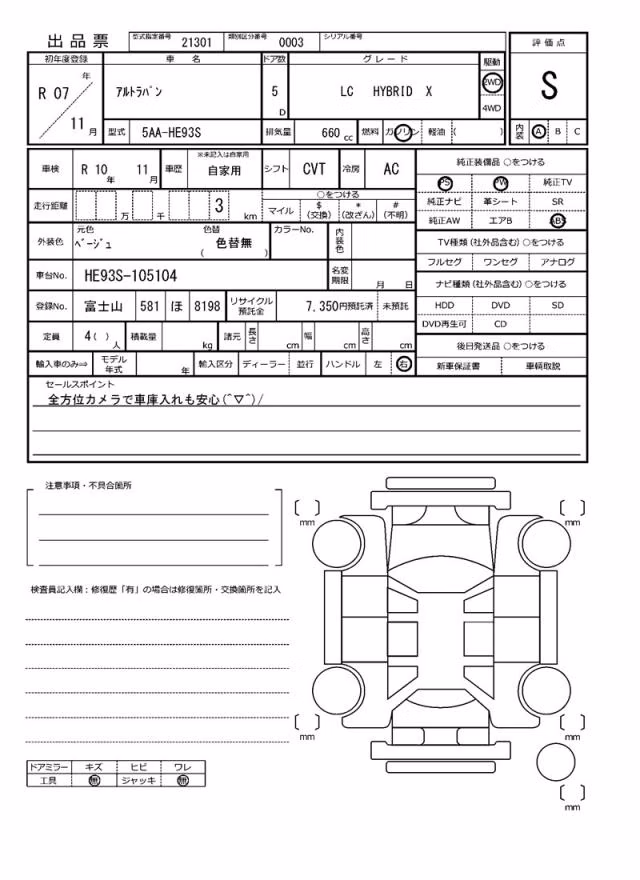 出品票 型式指定番号 21301 類別区分番号 0003 シリアル番号
評価点
S
内装 A B C
初年度登録 車名 ドア数 グレード 駆動
R 07 年 11 月 ｱﾙﾄﾗﾊﾟﾝ 5 D LC HYBRID X 2WD
4WD
型式 5AA-HE93S 排気量 660 cc 燃料 ガソリン 軽油 ( )
車検 R 10 年 11 月 車歴 ※未記入は自家用 自家用 シフト CVT 冷房 AC
走行距離 万 千 3 km
○をつける
マイル $ (交換) * (改ざん) # (不明)
外装色 元色 ﾍﾞｰｼﾞｭ 色替 色替無 ( ) カラーNo. 内装色
車台No. HE93S-105104 名変期限 月 日
登録No. 富士山 581 ほ 8198 リサイクル預託金 7,350円預託済 未預託
定員 4 ( ) 人 積載量 kg 諸元 長さ cm 幅 cm 高さ cm
輸入車のみ⇒ モデル年式 年 輸入区分 ディーラー 並行 ハンドル 左 右
純正装備品 ○をつける
PS PW 純正TV
純正ナビ 革シート SR
純正AW エアB ABS
TV種類 (社外品含む) ○をつける
フルセグ ワンセグ アナログ
ナビ種類 (社外品含む) ○をつける
HDD DVD SD
DVD再生可 CD
後日発送品 ○をつける
新車保証書 車輌取説
セールスポイント
全方位カメラで車庫入れも安心(^▽^)/
注意事項・不具合箇所
検査員記入欄：修復歴「有」の場合は修復箇所・交換箇所を記入
ドアミラー キズ ヒビ ワレ
工具 無 ジャッキ 無
mm
mm
mm
mm
mm